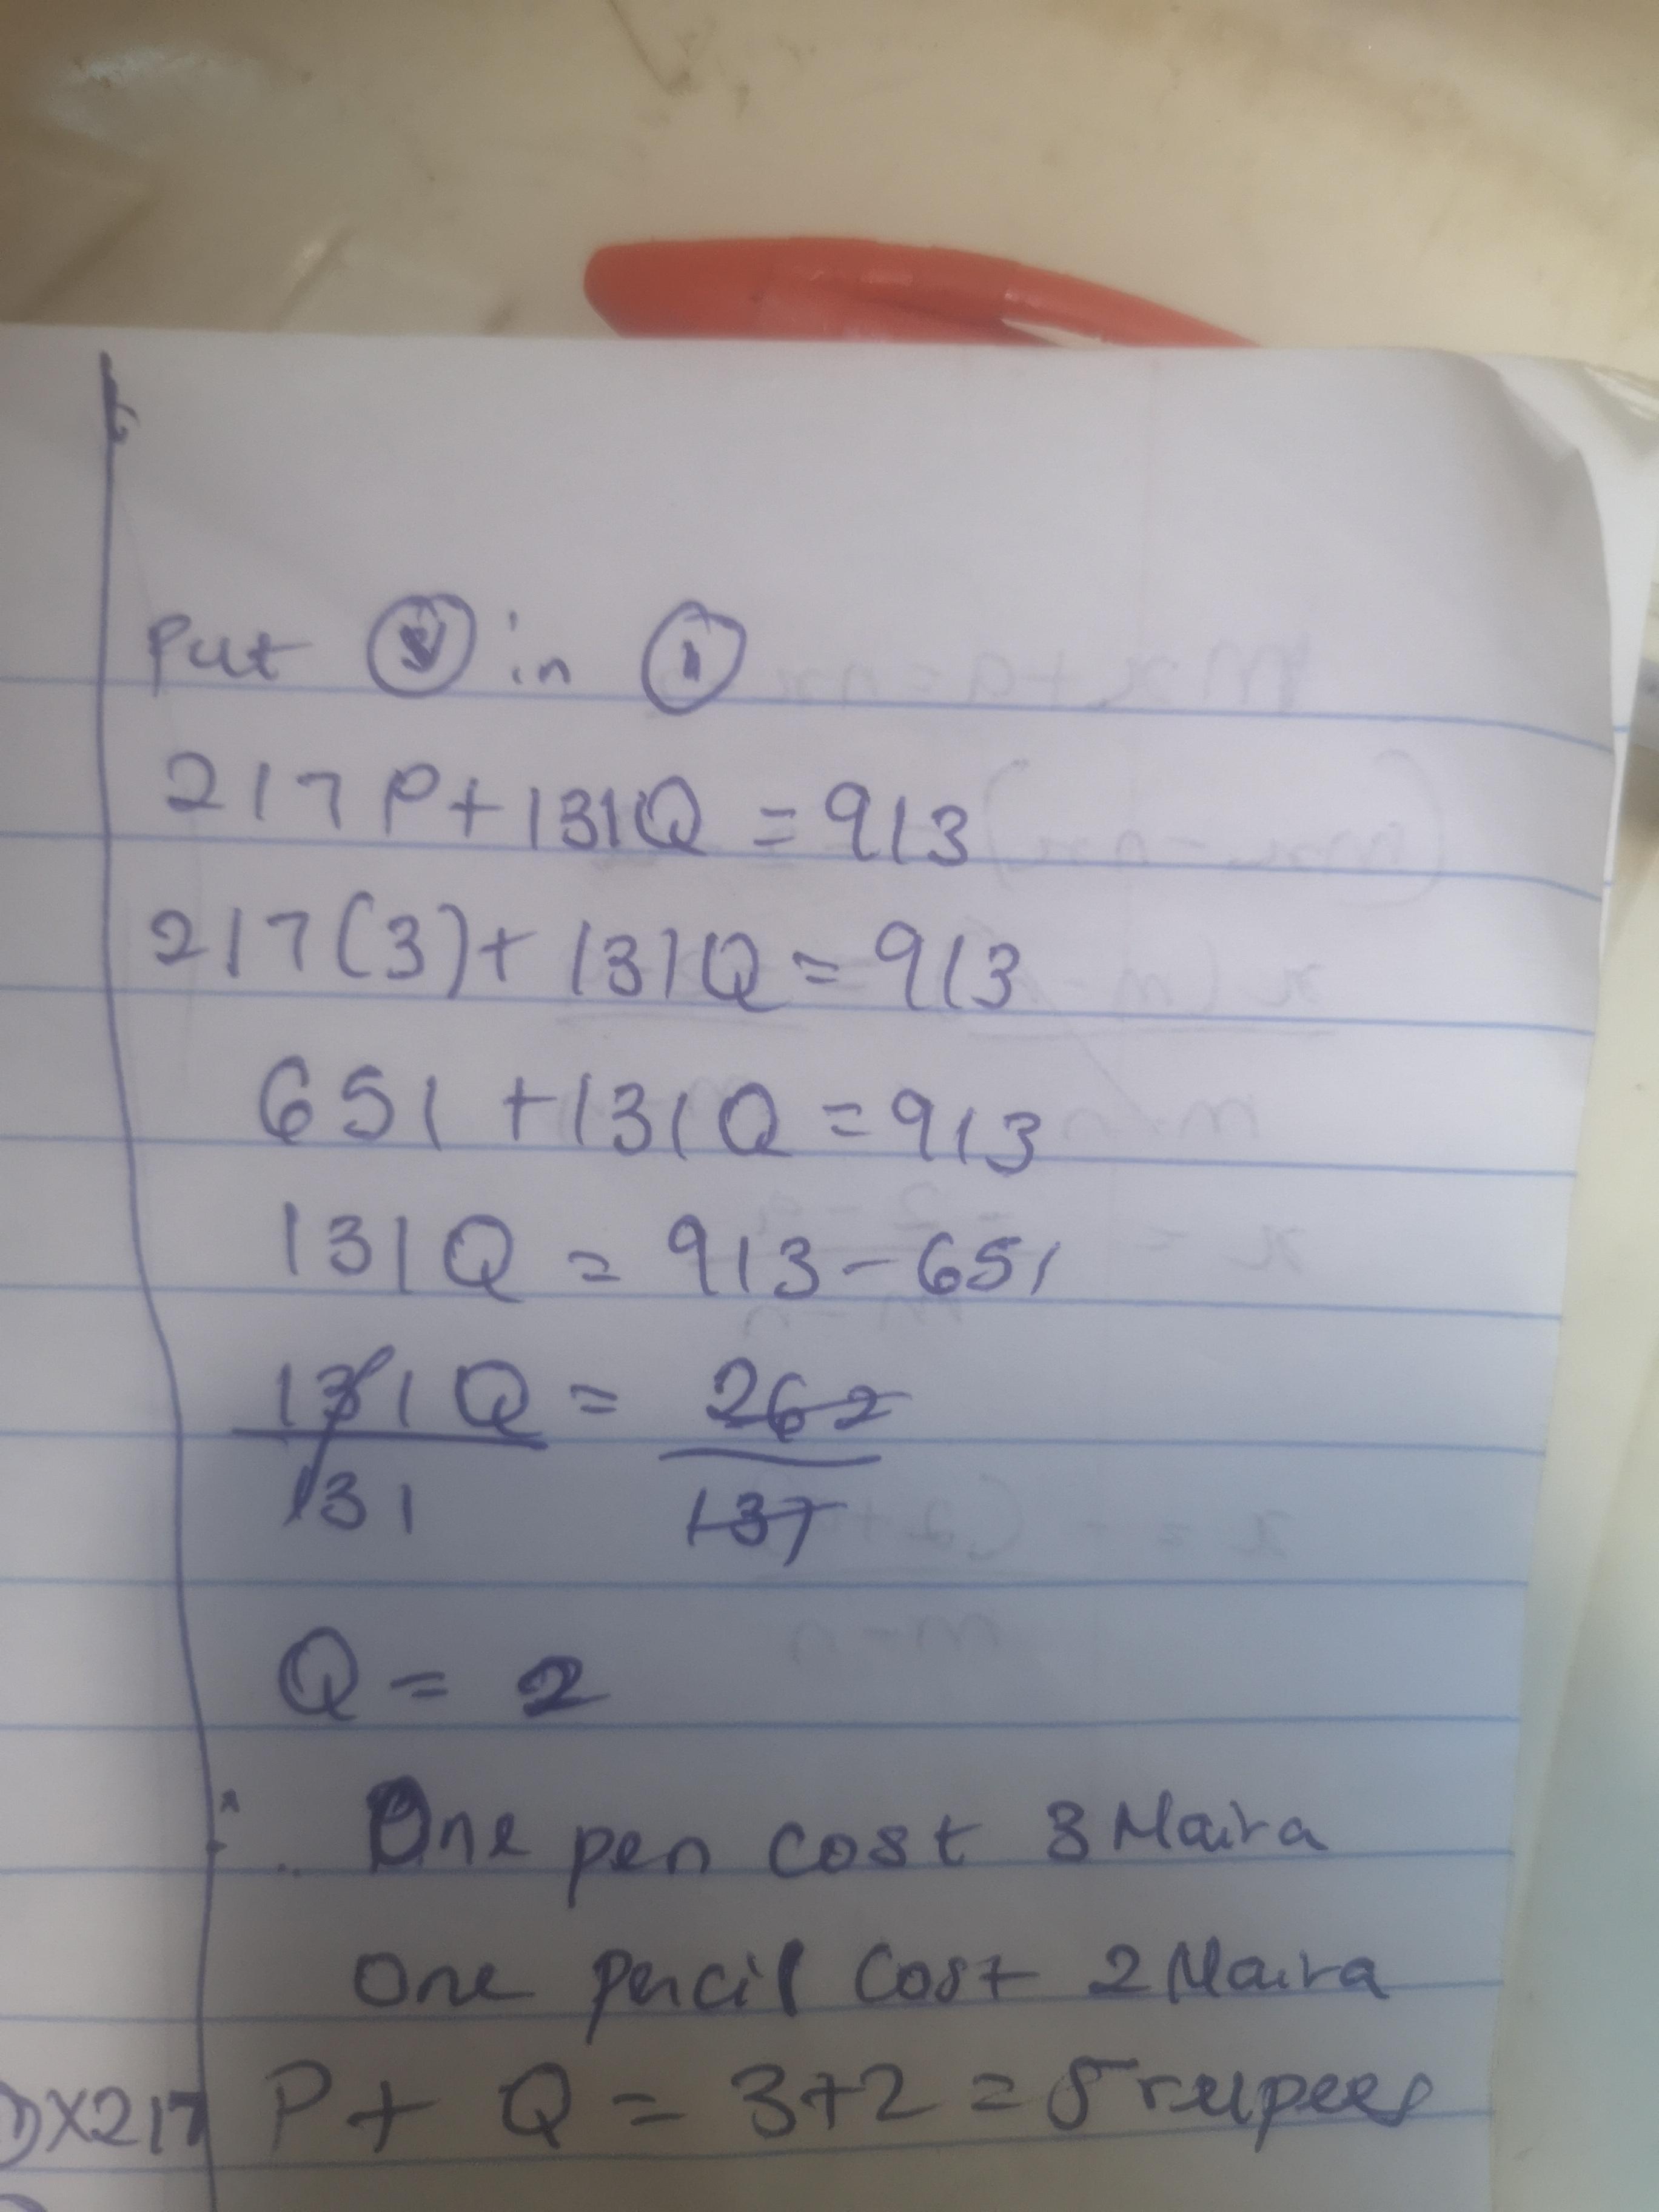 Put ⓥ in ①
217P + 131Q = 913
217(3) + 131Q = 913
651 + 131Q = 913
131Q = 913 - 651
131Q = 262
131 131
Q = 2
∴ One pen cost 3 Naira
One pencil cost 2 Naira
P + Q = 3+2 = 5 rupees
)×217